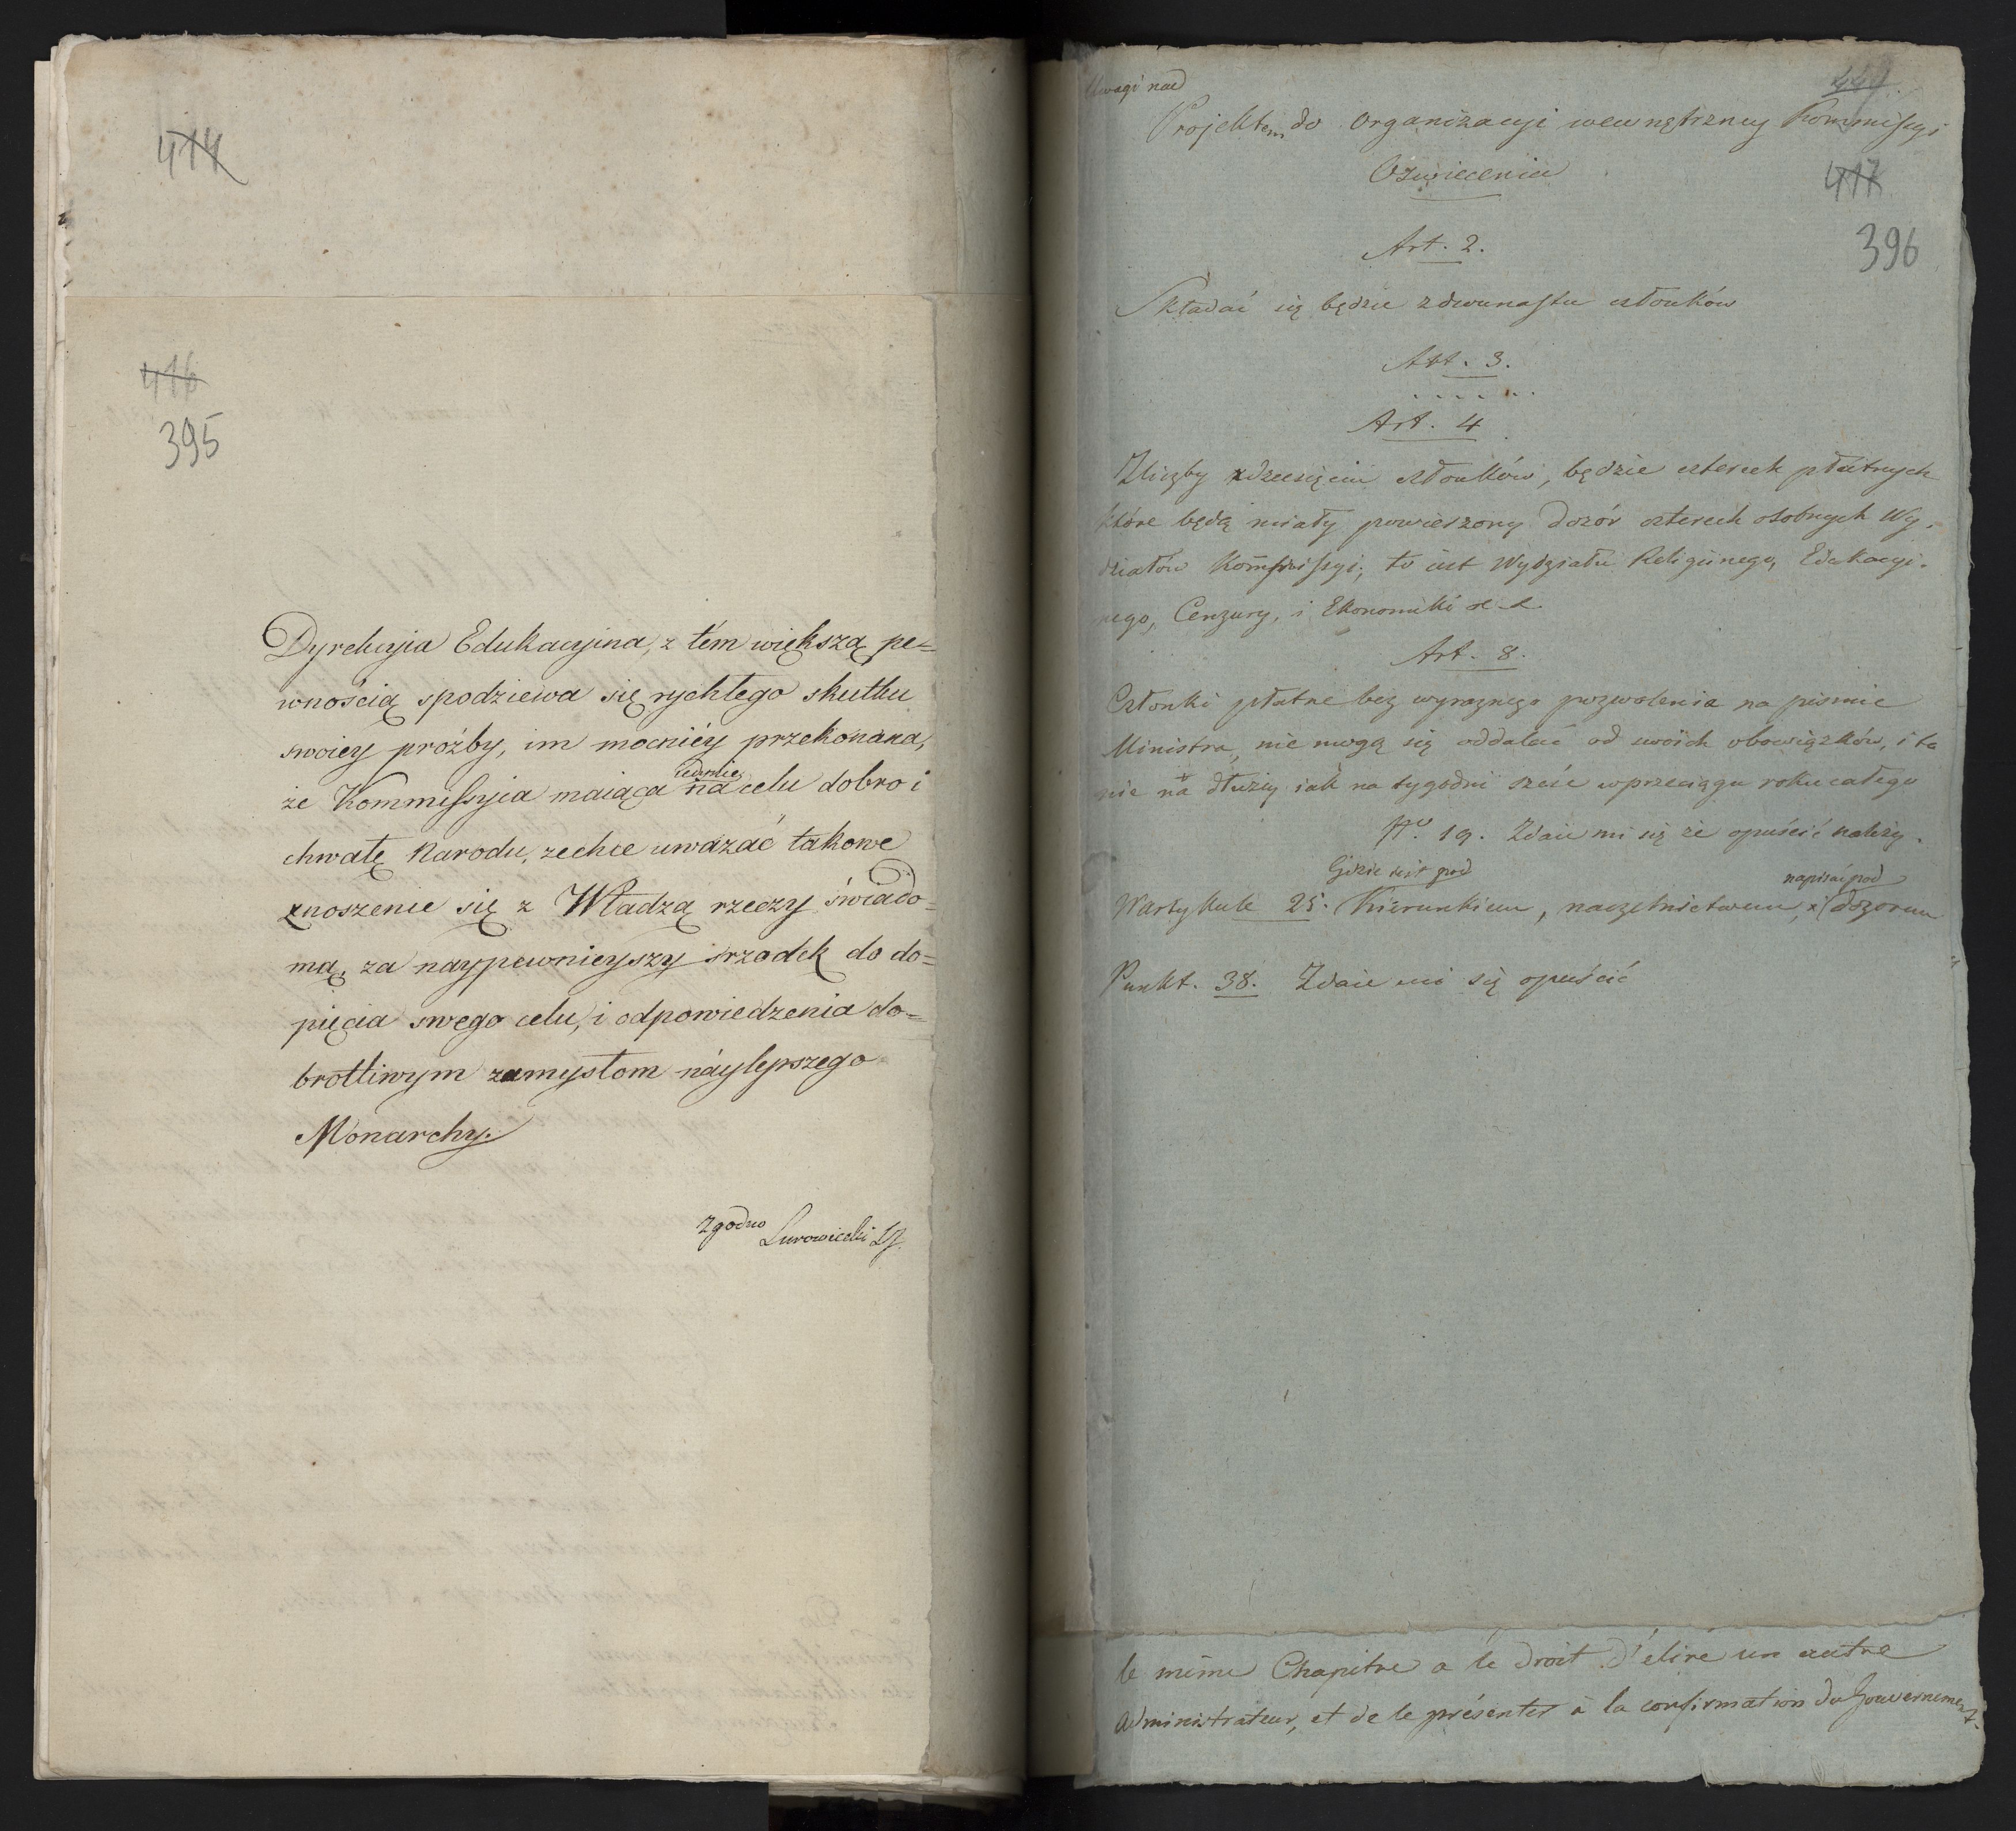 414
416
395
Dyrekcyia Edukacyina, z tém większą pe=
wnością spodziewa się rychłego skutku
swoiey proźby, im mocniéy przekonana,
że Kommissyia maiąca iedynie na celu dobro i
chwałę Narodu, zechce uważać takowe
znoszenie się z Władzą rzeczy świado=
mą, za naypewnieyszy srzodek do do=
pięcia swego celu, i odpowiedzenia do=
brotliwym zamysłom náylepszego
Monarchy.
Zgodno
Surowiecki
Uwagi nad
Projektem do Organizacyi wewnętrzney Kommissyi
Oświecenia
417
396
Art. 2.
Składać się będzie z dwunastu członków
Art. 3.
......
Art. 4
Z liczby dziesięciu członków, będzie czterech płatnych
które będą miały powierzony dozór czterech osobnych Wy-
działów Kommissyi; to iest Wydziału Religiinego, Edukacyi-
nego, Cenzury, i Ekonomiki
Art. 8.
Członki płatne bez wyraznego pozwolenia na pismie
Ministra, nie mogą się oddalać od swoich obowiązków, i to
nie na dłużey iak na tygodni sześć w przeciągu roku całego
No. 19. Zdaie mi się że opuścić należy.
Gdzie iest pod napisać pod
W artykule 25. Kierunkiem, naczelnictwem, dozorem
Punkt. 38. Zdaie mi się opuścić
le même Chapitre a le droit d'élire un autre
administrateur, et de le présenter à la confirmation du Gouvernement.